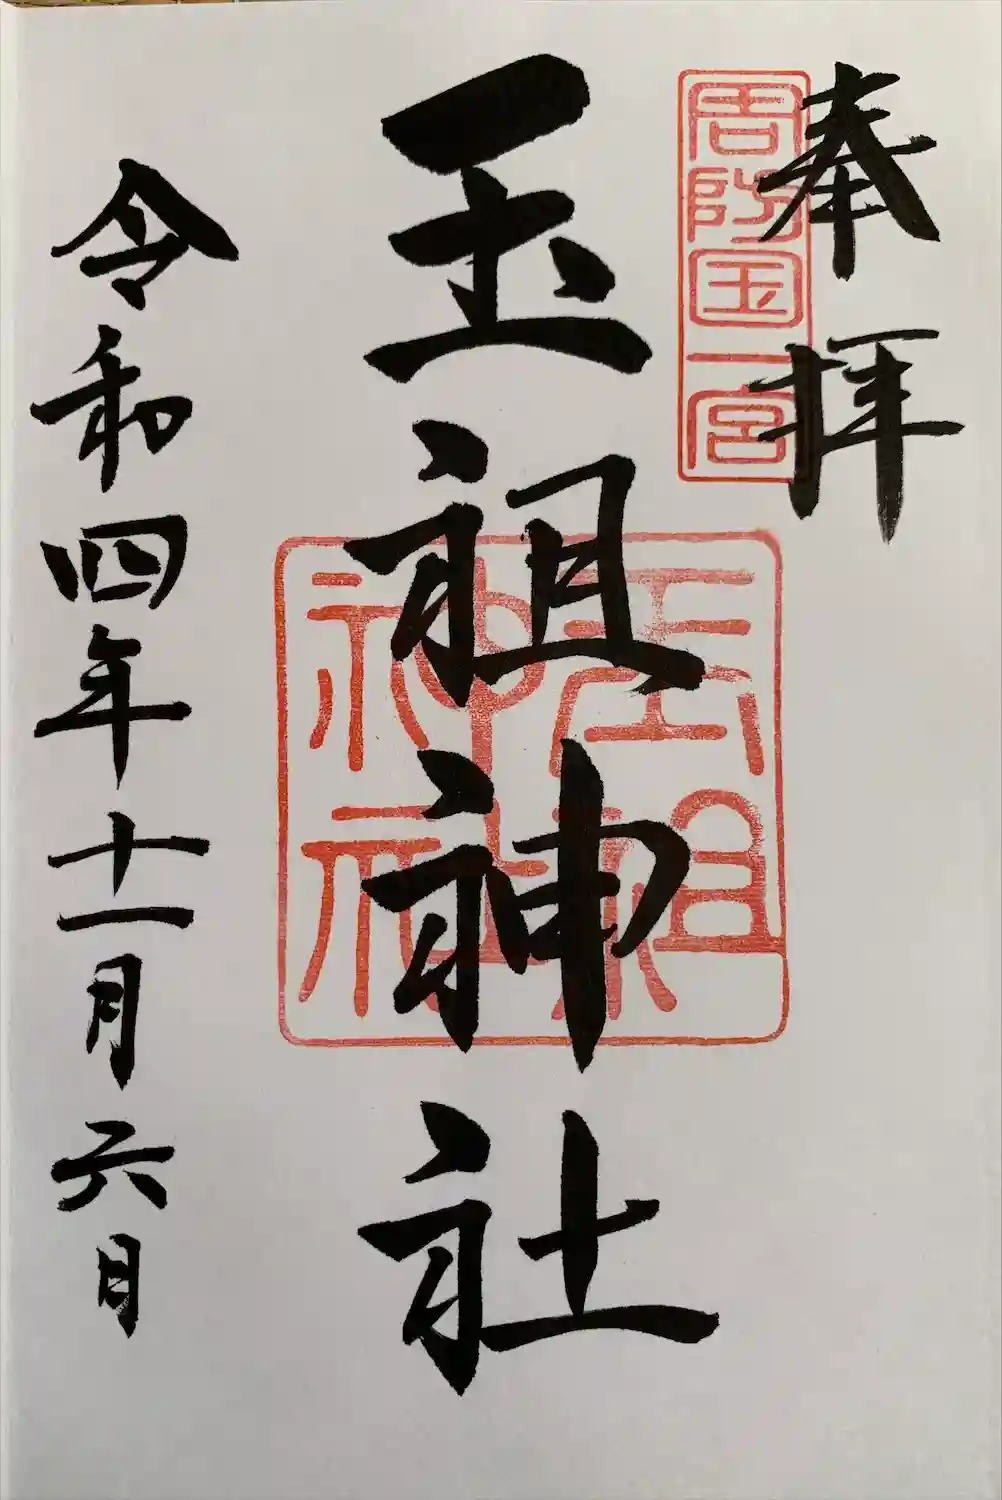 奉拝
周防国一宮
玉祖神社
玉祖
神社
令和四年十一月六日